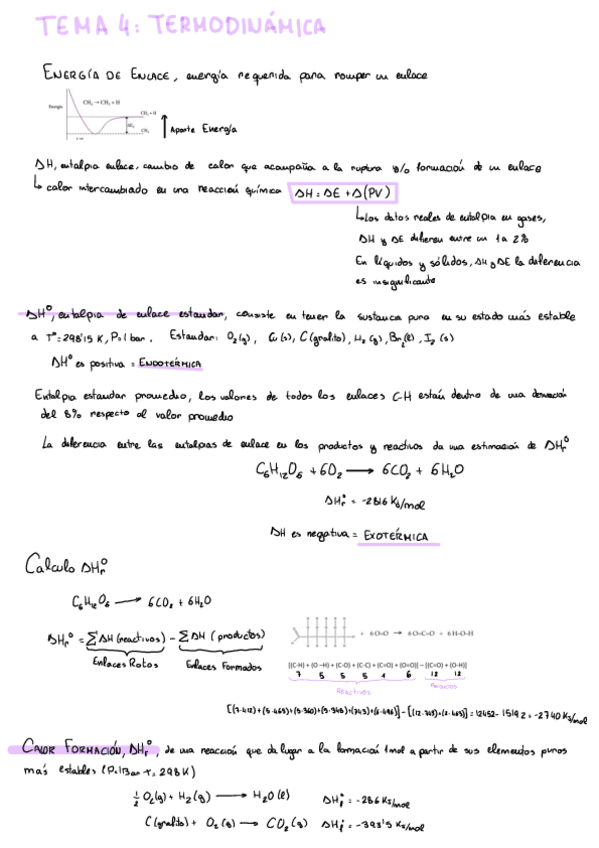 TEMA 4: TERMODINÁMICA
ENERGÍA DE ENLACE, energía requerida para romper un enlace
Energía
CH₄ → CH₃ + H
CH₃ + H
CH₄
Aporte Energía
ΔH, entalpia enlace, cambio de calor que acompaña a la ruptura y/o formación de un enlace
↳ calor intercambiado en una reacción química ΔH = ΔE + Δ(PV)
↳ Los datos reales de entalpía en gases,
ΔH y ΔE difieren entre un 1 a 2%
En líquidos y sólidos, ΔH y ΔE la diferencia
es insignificante
ΔH°, entalpia de enlace estandar, consiste en tener la sustancia pura en su estado más estable
a T°=298'15 K, P=1 bar. Estandar: O₂(g), Cu(s), C(grafito), H₂(g), Br₂(l), I₂(s)
ΔH° es positiva = ENDOTÉRMICA
Entalpia estandar promedio, los valores de todos los enlaces C-H están dentro de una desviación
del 8% respecto al valor promedio
La diferencia entre las entalpias de enlace en los productos y reactivos da una estimación de ΔHr°
C₆H₁₂O₆ + 6O₂ → 6CO₂ + 6H₂O
ΔHr° = -2816 KJ/mol
ΔH es negativa = EXOTÉRMICA
Calculo ΔHr°
C₆H₁₂O₆ → 6CO₂ + 6H₂O
ΔHr° = ΣΔH (reactivos) - ΣΔH (productos)
Enlaces Rotos Enlaces Formados
+ 6 O=O → 6 O=C=O + 6 H-O-H
[(C-H) + (O-H) + (C-O) + (C-C) + (C=O) + (O=O)] - [(C=O) + (O-H)]
7 5 5 5 1 6 12 12
Reactivos Productos
[(7·412)+(5·463)+(5·360)+(5·348)+(743)+(6·496)]-[(12·743)+(12·463)] = 12452-15192 = -2740 KJ/mol
CALOR FORMACIÓN, ΔHf°, de una reacción que da lugar a la formación 1 mol a partir de sus elementos puros
más estables (P=1Bar T=298K)
½ O₂(g) + H₂(g) → H₂O (l) ΔHf° = -286 KJ/mol
C(grafito) + O₂(g) → CO₂(g) ΔHf° = -393'5 KJ/mol